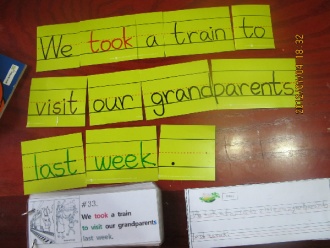 We took a train to
visit our grandparents
last week .
#33.
We took a train
to visit our grandparents
last week.